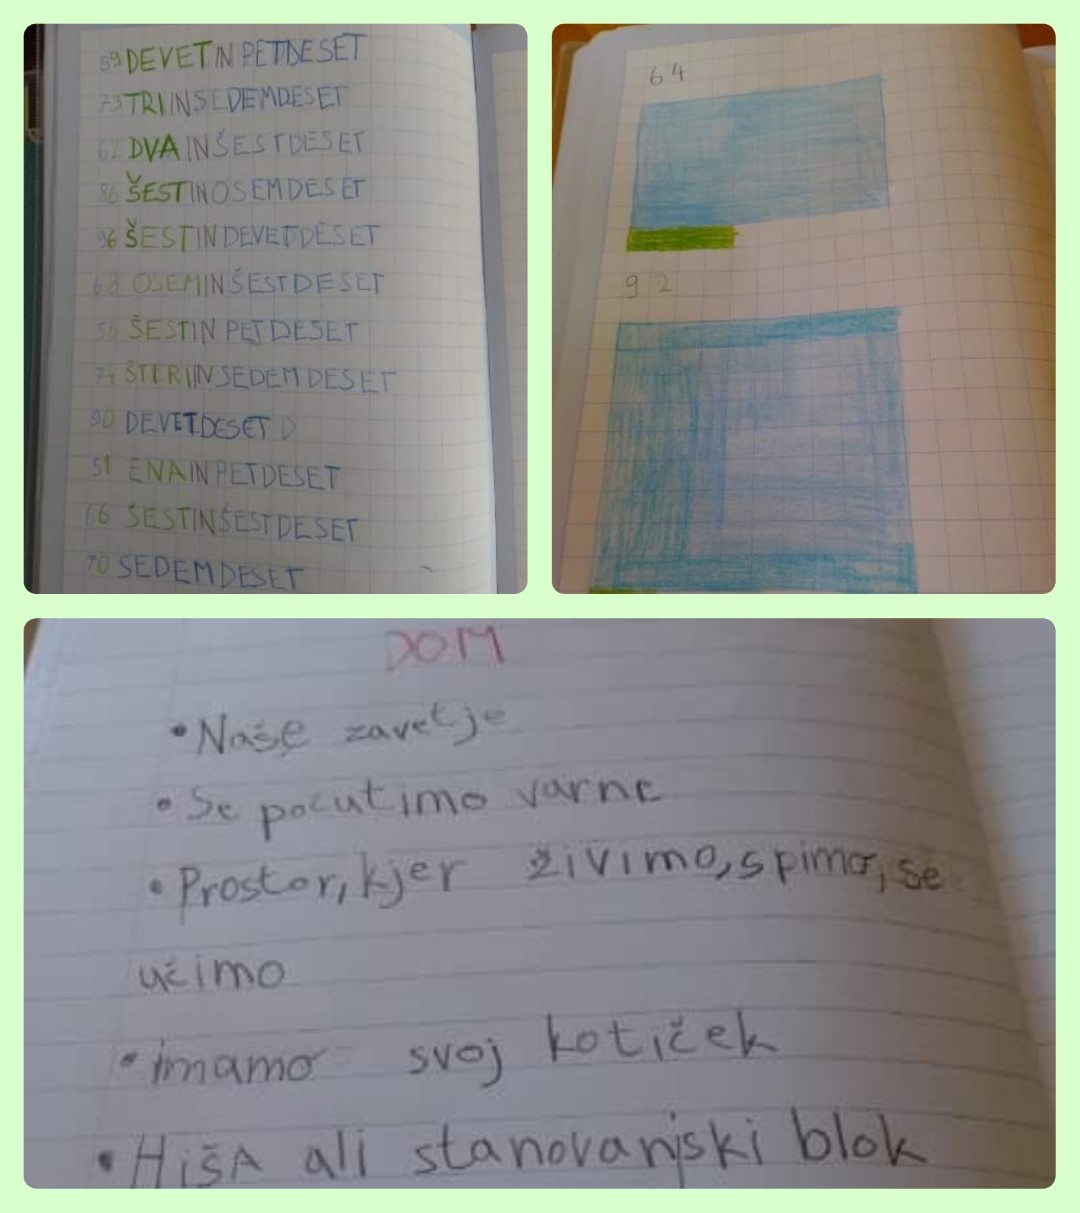 59 DEVETINPETDESET
73 TRIINSEDEMDESET
62 DVAINŠESTDESET
86 ŠESTINOSEMDESET
96 ŠESTINDEVETDESET
68 OSEMINŠESTDESET
56 ŠESTINPETDESET
74 ŠTIRIINSEDEMDESET
90 DEVETDESET D
51 ENAINPETDESET
66 ŠESTINŠESTDESET
70 SEDEMDESET
64
92
DOM
• Naše zavetje
• Se počutimo varne
• Prostor, kjer živimo, spimo, se
učimo
• imamo svoj kotiček
• HišA ali stanovanjski blok